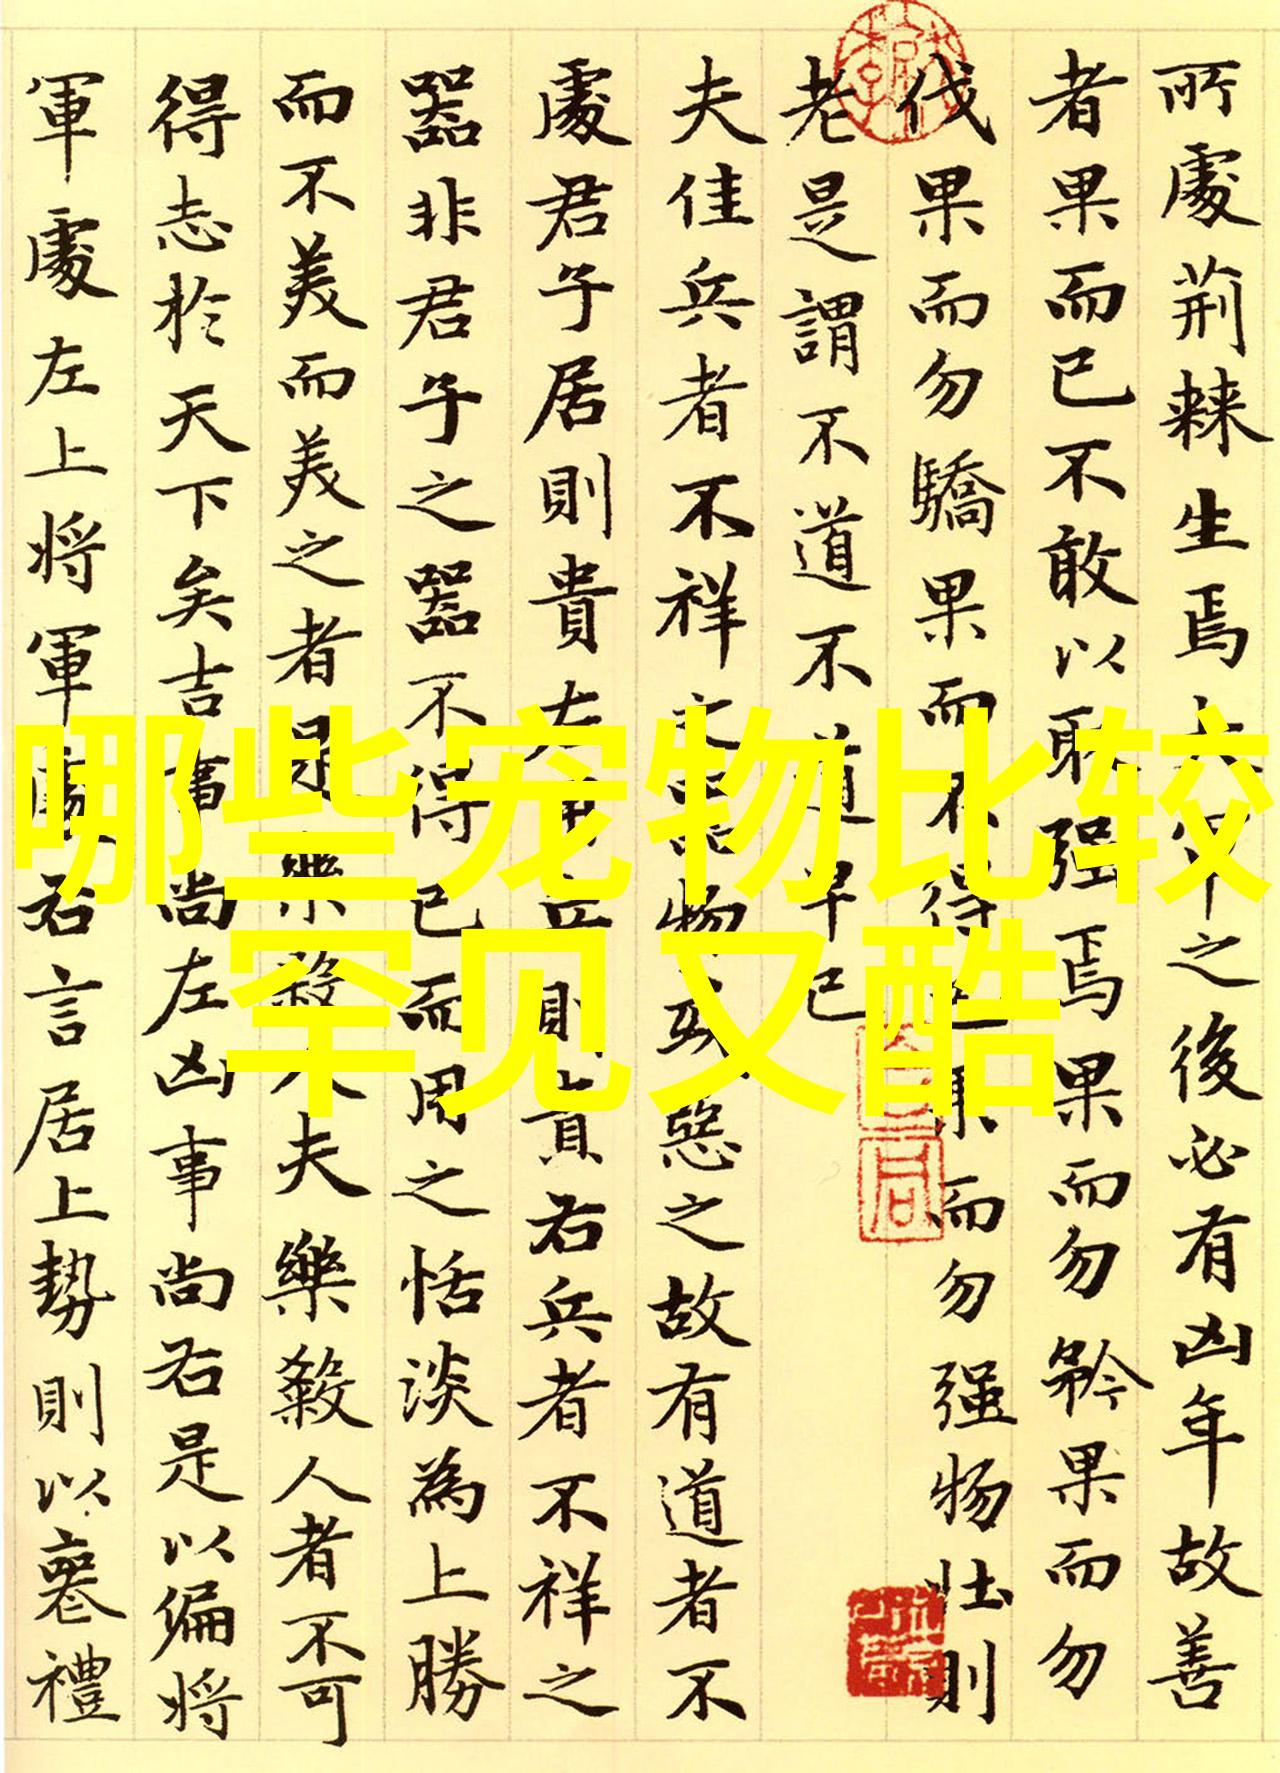 所處荊棘生焉大軍之後必有凶年故善
者果而已不敢以取强焉果而勿矜果而勿
伐果而勿驕果而不得是果而勿强物壯則
老是謂不道不道早已
夫佳兵者不祥之器物或惡之故有道者不
處君子居則貴左用兵則貴右兵者不祥之
器非君子之器不得已而用之恬淡為上勝
而不美而美之者是樂殺人夫樂殺人者不可
得志於天下矣吉事尚左凶事尚右是以偏將
軍處左上將軍處右言居上勢則以喪禮
哪些宠物比较
罕见又酷